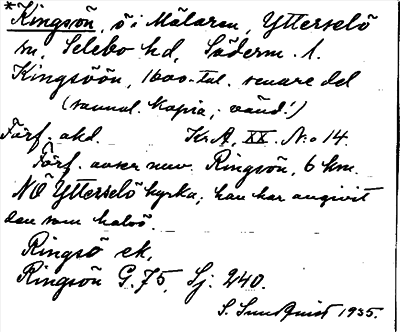 *Kingsön, ö i Mälaren, Ytterselö
sn, Selebo hd, Söderm. l.
Kingsöön, 1600-tal. senare del
(samml. Kopia; vänd!)
Förf. okd. Kr.A, XX. N:o 14.
Förf. avser nuv. Ringsön, 6 km.
NÖ Ytterselö kyrka; han har angivit
den som halvö.
Ringsö ek.
Ringsön G. 75, Sj. 240.
S. Sundquist 1935.